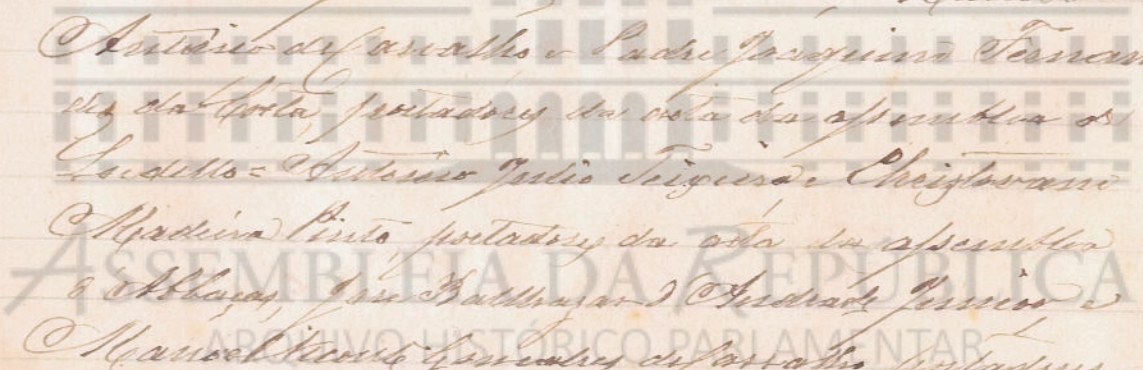 Antonio de Carvalho e Padre Joaquim Fernan
des da Costa, portadores da acta da assemblea de
Lordello = Antonio Julio Teixeira e Christovam
Madeira Pinto, portadores da acta da assemblea
d'Abbaças, José Balthazar d'Andrade Junior e
ASSEMBLEIA DA REPÚBLICA
Manoel Gonçalves de Carvalho, portadores
ARQUIVO HISTÓRICO PARLAMENTAR